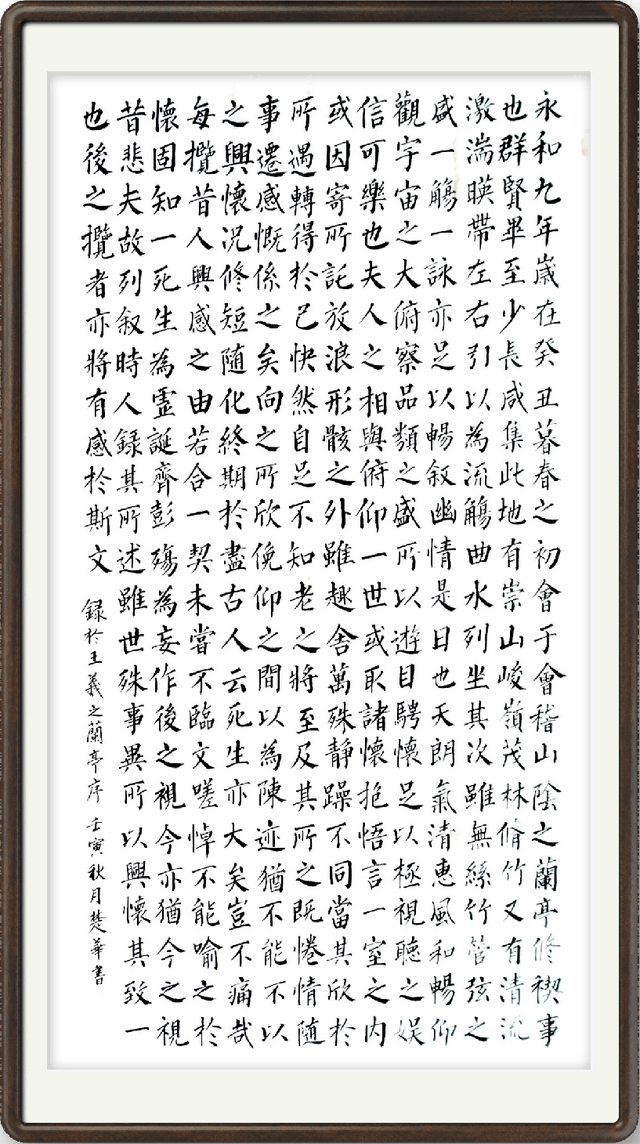 永和九年歲在癸丑暮春之初會于會稽山陰之蘭亭修禊事
也群賢畢至少長咸集此地有崇山峻嶺茂林脩竹又有清流
激湍暎帶左右引以為流觴曲水列坐其次雖無絲竹管弦之
盛一觴一詠亦足以暢叙幽情是日也天朗氣清惠風和暢仰
觀宇宙之大俯察品類之盛所以遊目騁懷足以極視聽之娛
信可樂也夫人之相與俯仰一世或取諸懷抱悟言一室之內
或因寄所託放浪形骸之外雖趣舍萬殊静躁不同當其欣於
所遇轉得於己快然自足不知老之將至及其所之既惓情隨
事遷感慨係之矣向之所欣俛仰之間以為陳迹猶不能不以
之興懷況修短隨化終期於盡古人云死生亦大矣豈不痛哉
每攬昔人興感之由若合一契未嘗不臨文嗟悼不能喻之於
懷固知一死生為霊誕齊彭殤為妄作後之視今亦猶今之視
昔悲夫故列叙時人錄其所述雖世殊事異所以興懷其致一
也後之攬者亦將有感於斯文
錄於王羲之蘭亭序 壬寅秋月楚華書